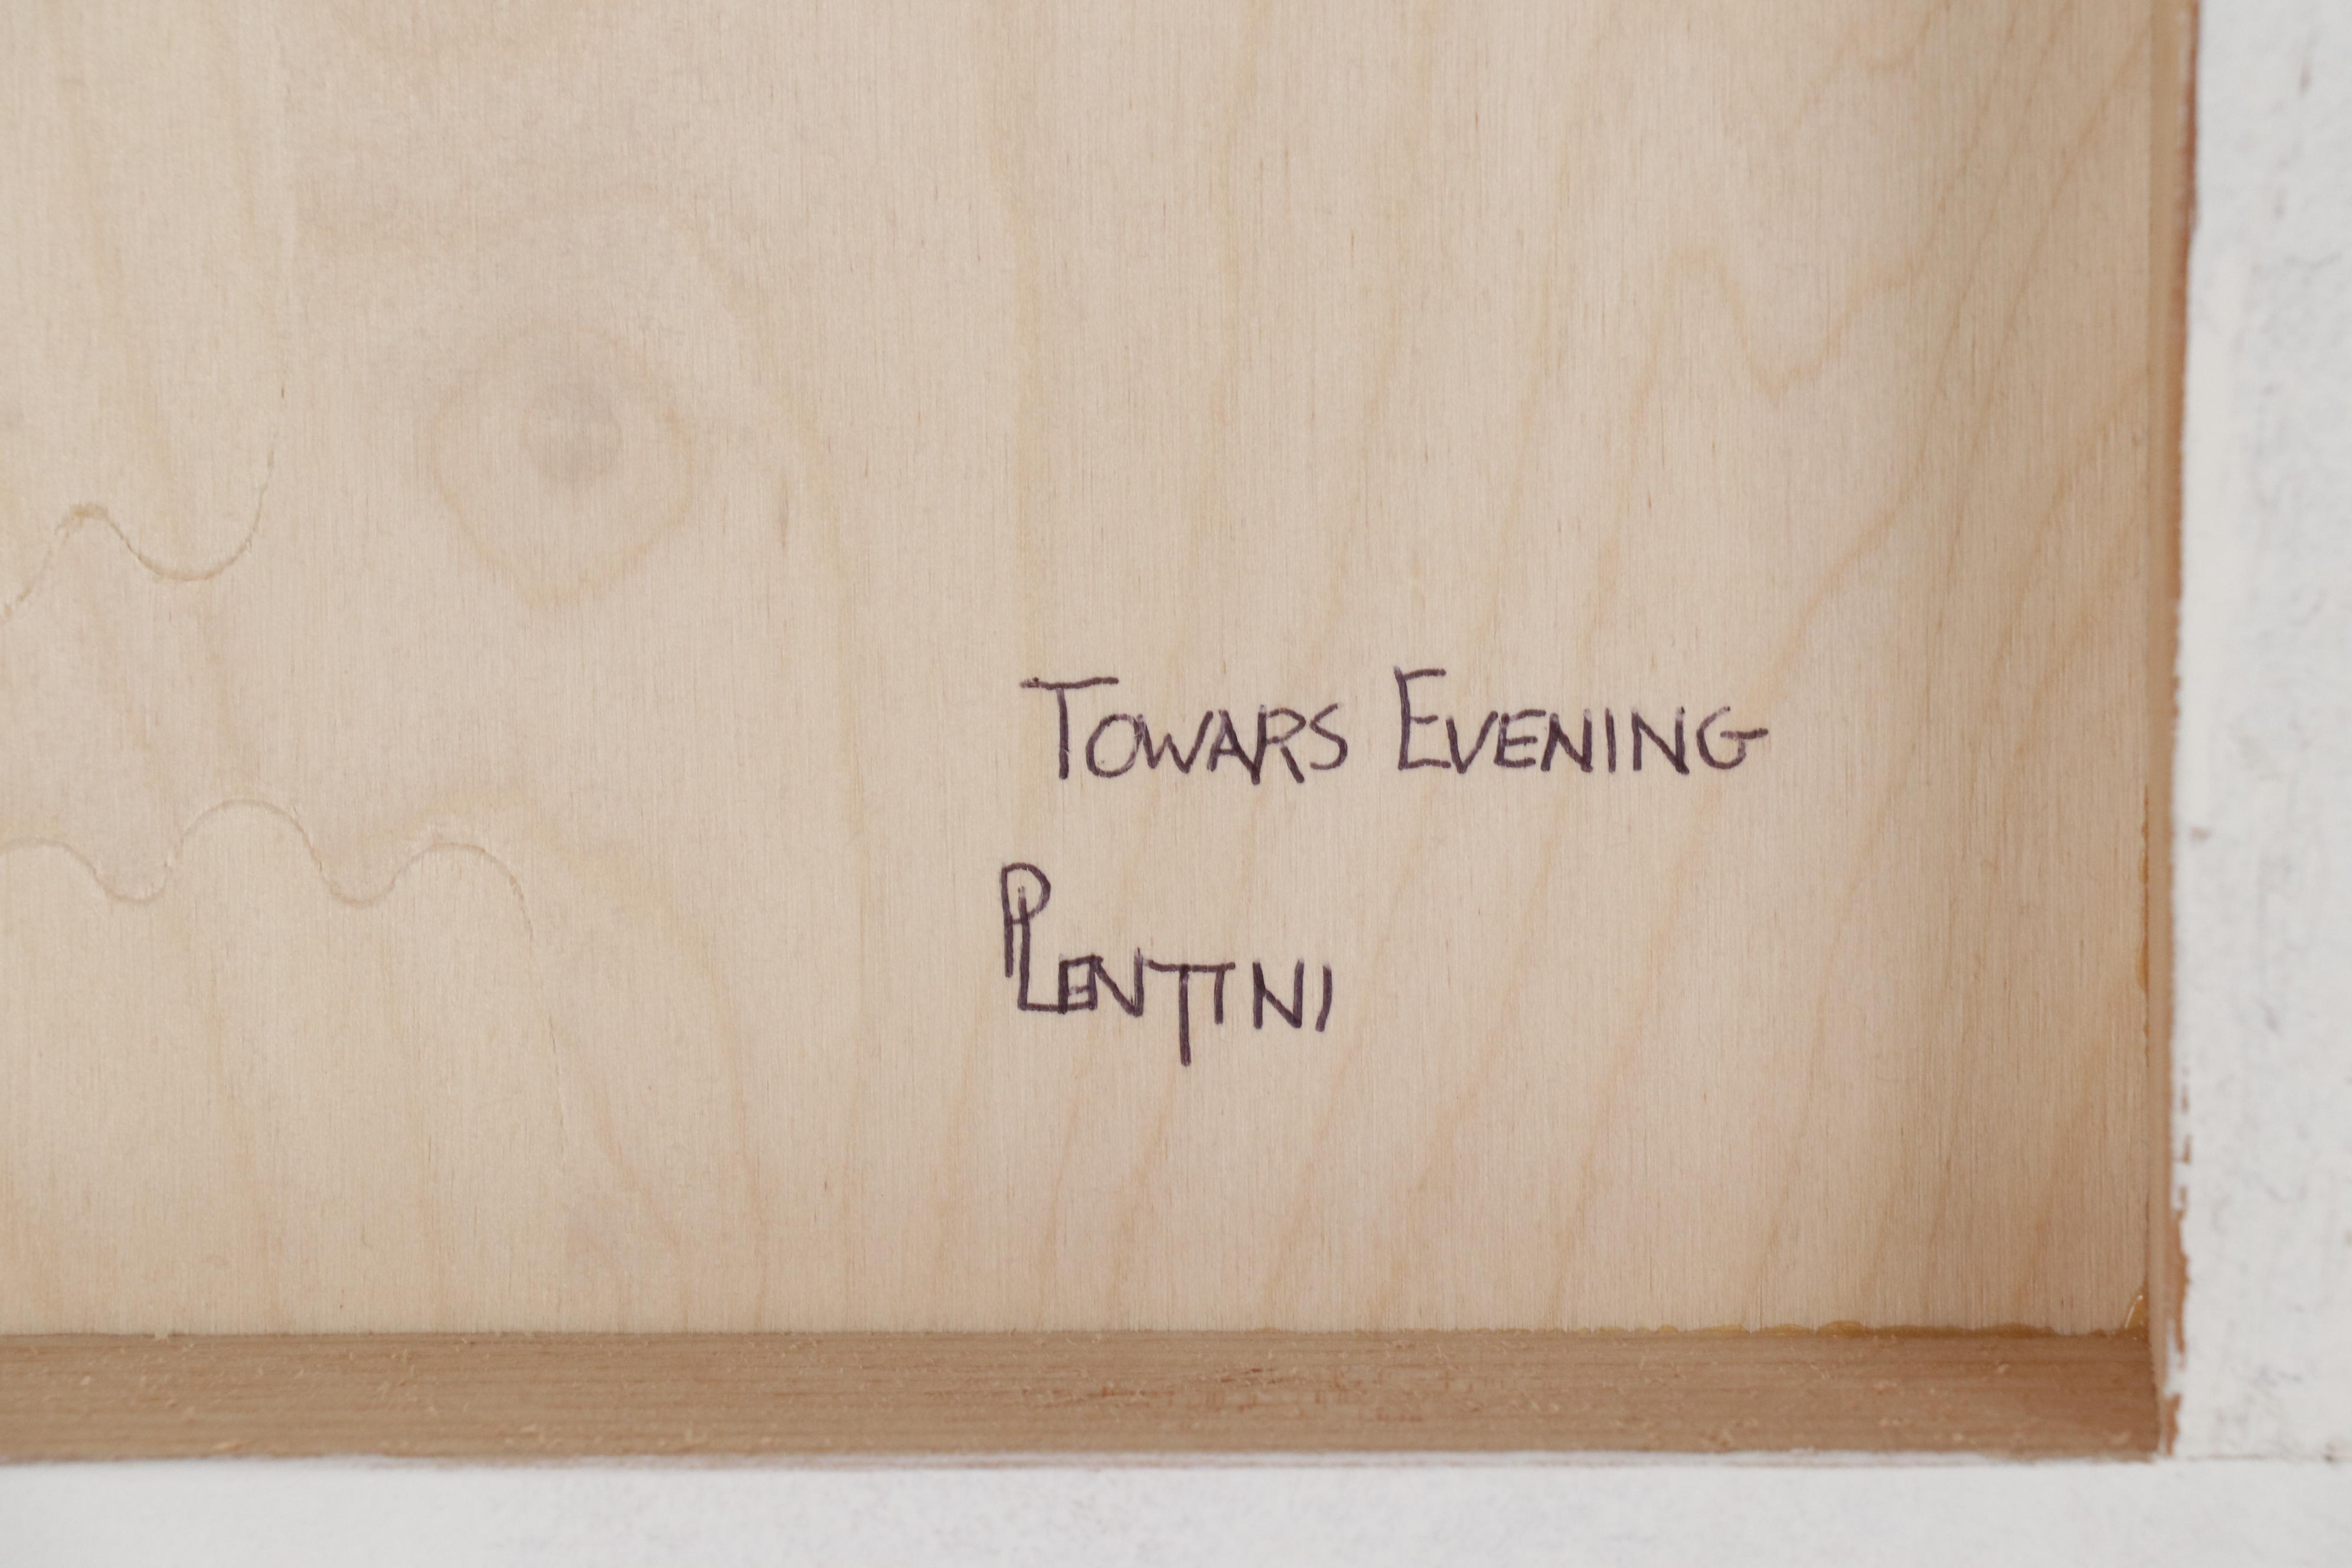 TOWARS EVENING
PLENTINI